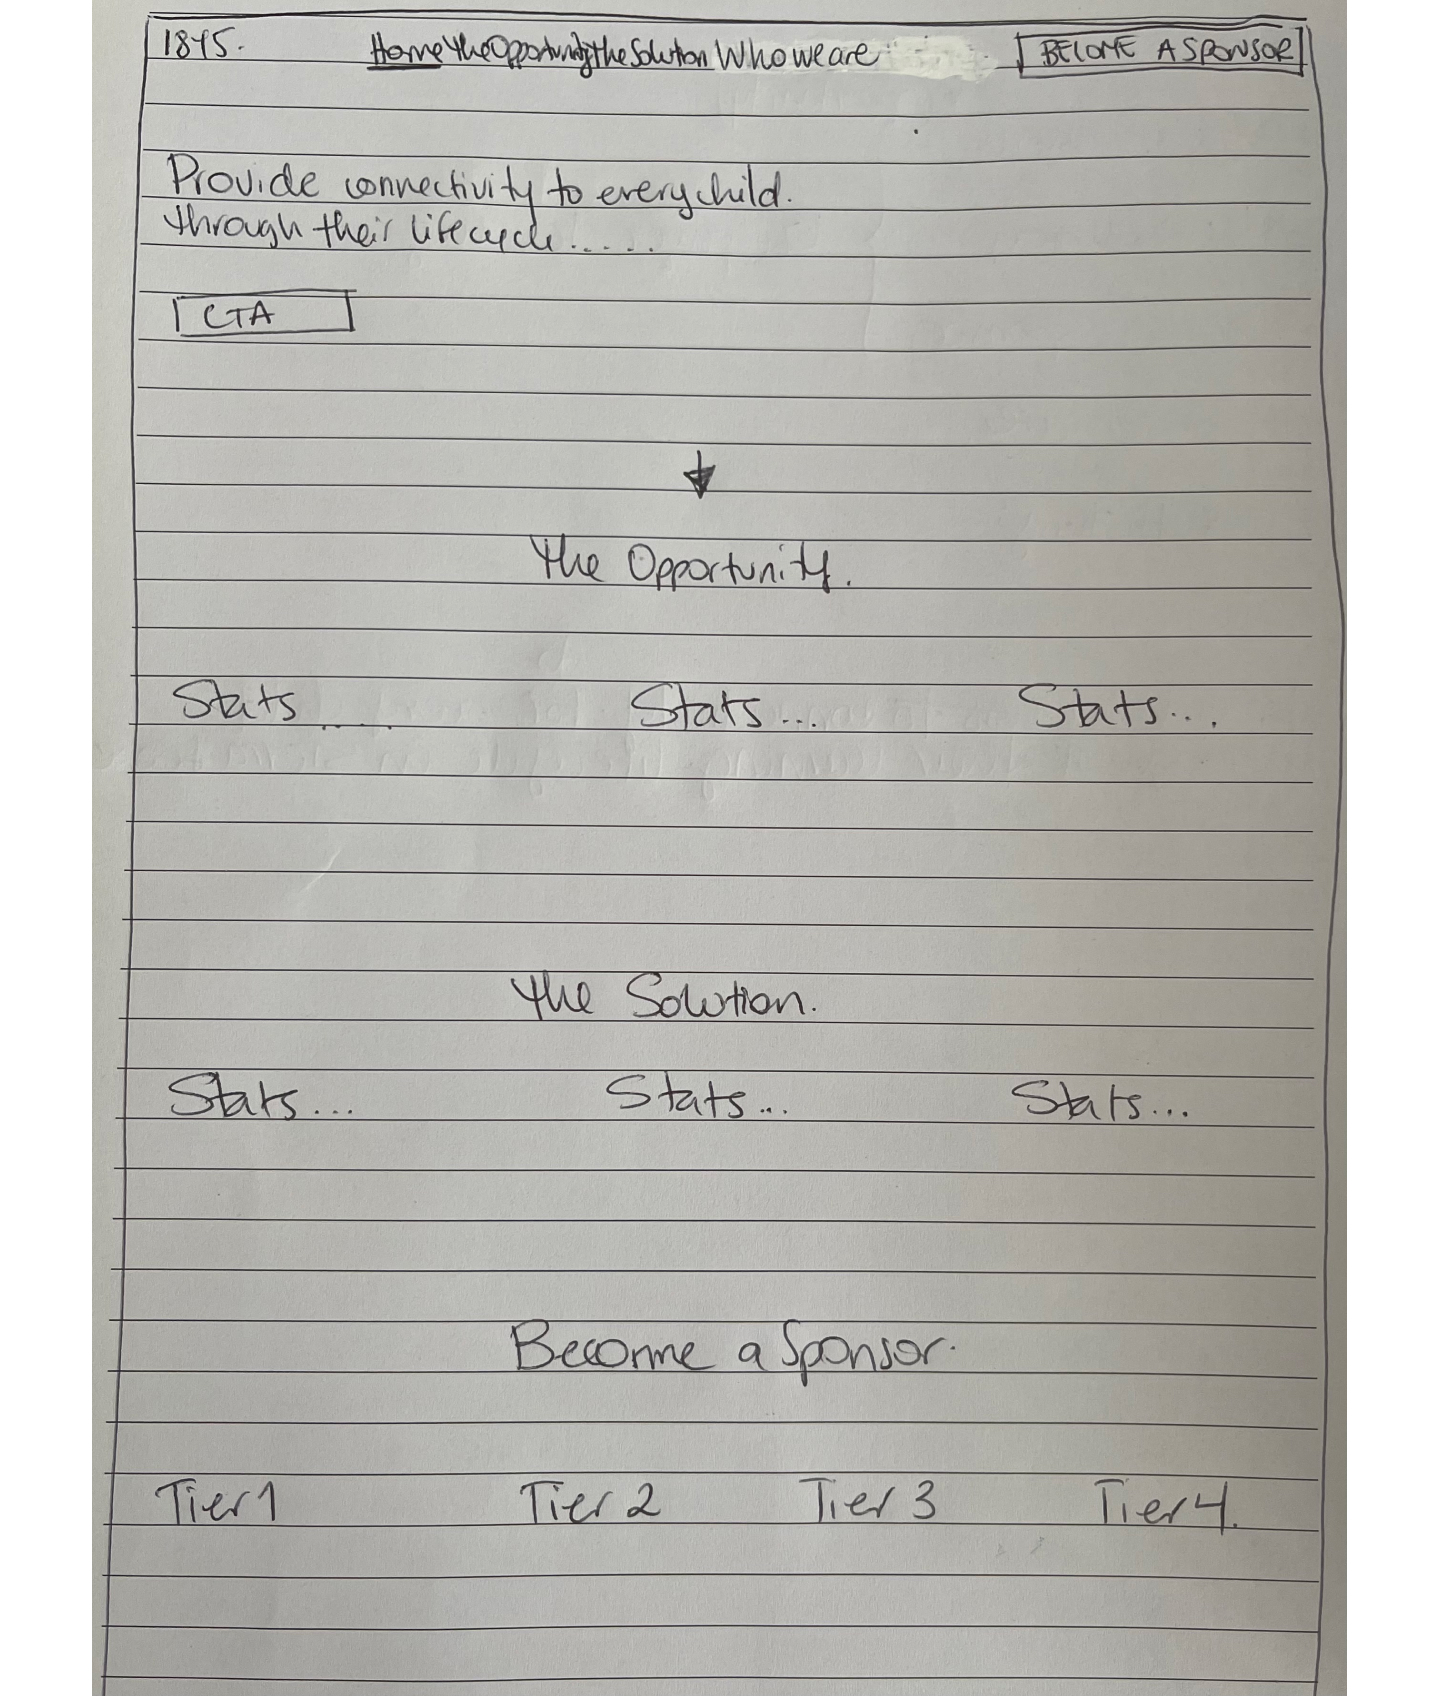 1845. Home The Opportunity The Solution Who we are BECOME A SPONSOR
Provide connectivity to every child.
through their lifecycle.....
CTA
The Opportunity.
Stats.... Stats... Stats...
The Solution.
Stats... Stats... Stats...
Become a Sponsor.
Tier 1 Tier 2 Tier 3 Tier 4.